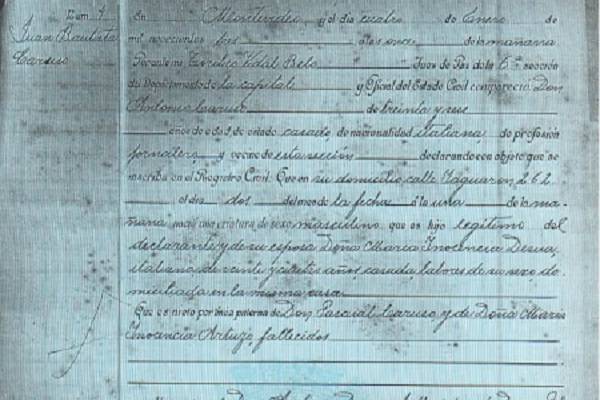 Num. 4
Juan Bautista
Caruso
En Montevideo y el dia cuatro de Enero de
mil novecientos tres á las once de la mañana
Por ante mí Vidal Juez de Paz de la 6ª sección
del Departamento de la capital y Oficial del Estado Civil compareció Don
Antonio Caruso de treinta y seis
años de edad, de estado casado, de nacionalidad italiana, de profesión
jornalero y vecino de esta sección declarando con objeto que se
inscriba en el Registro Civil: Que en su domicilio calle Yaguarón 262
el dia dos del mes de la fecha á la una de la ma-
ñana nació una criatura de sexo masculino que es hijo legítimo del
declarante y de su esposa Doña María Inocencia
italiana, de veinte y cuatro años casada, labores de su sexo, do-
miciliada en la misma casa
Que es nieto por línea paterna de Don Pascual Caruso y de Doña María
Inocencia Artuzo, fallecidos